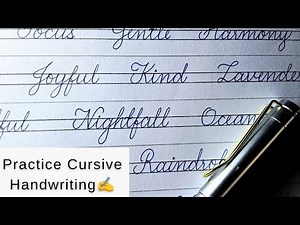 Focus Gentle Harmony
Joyful Kind Lavender
ful Nightfall Ocean
Raindro
Practice Cursive
Handwriting✍️